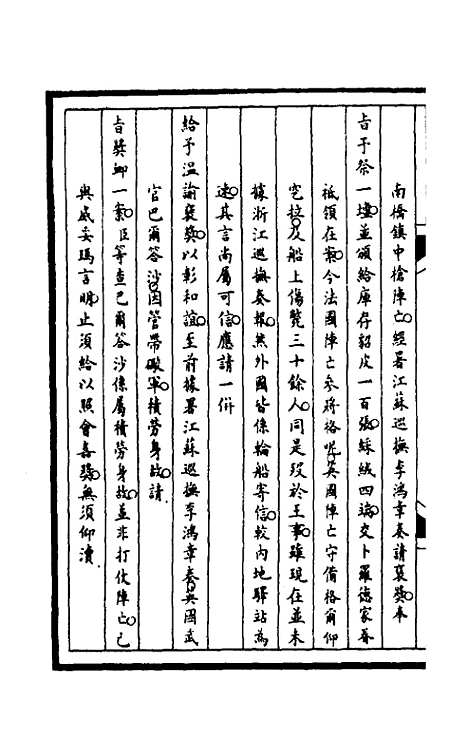 南橋鎮中槍陣亡。經署江蘇巡撫李鴻章奏請褒獎。奉
旨予祭一壇。並頒給庫存貂皮一百張。絲絨四端。交卜羅德家眷
祇領在案。今法國陣亡參將格呢。英國陣亡守備格爾仰
乞拉。及船上傷斃三十餘人。同是歿於王事。雖現在並未
據浙江巡撫奏報。然外國皆係輪船寄信。較內地驛站為
速。其言尚屬可信。應請一併
給予溫諭褒獎。以彰和誼。至前據署江蘇巡撫李鴻章奏。英國武
官巴爾答沙。因管帶礮軍。積勞身故。請
旨獎卹一案。臣等查巴爾答沙係屬積勞身故。並非打仗陣亡。已
與威妥瑪言明。止須給以照會嘉獎。無須仰瀆。